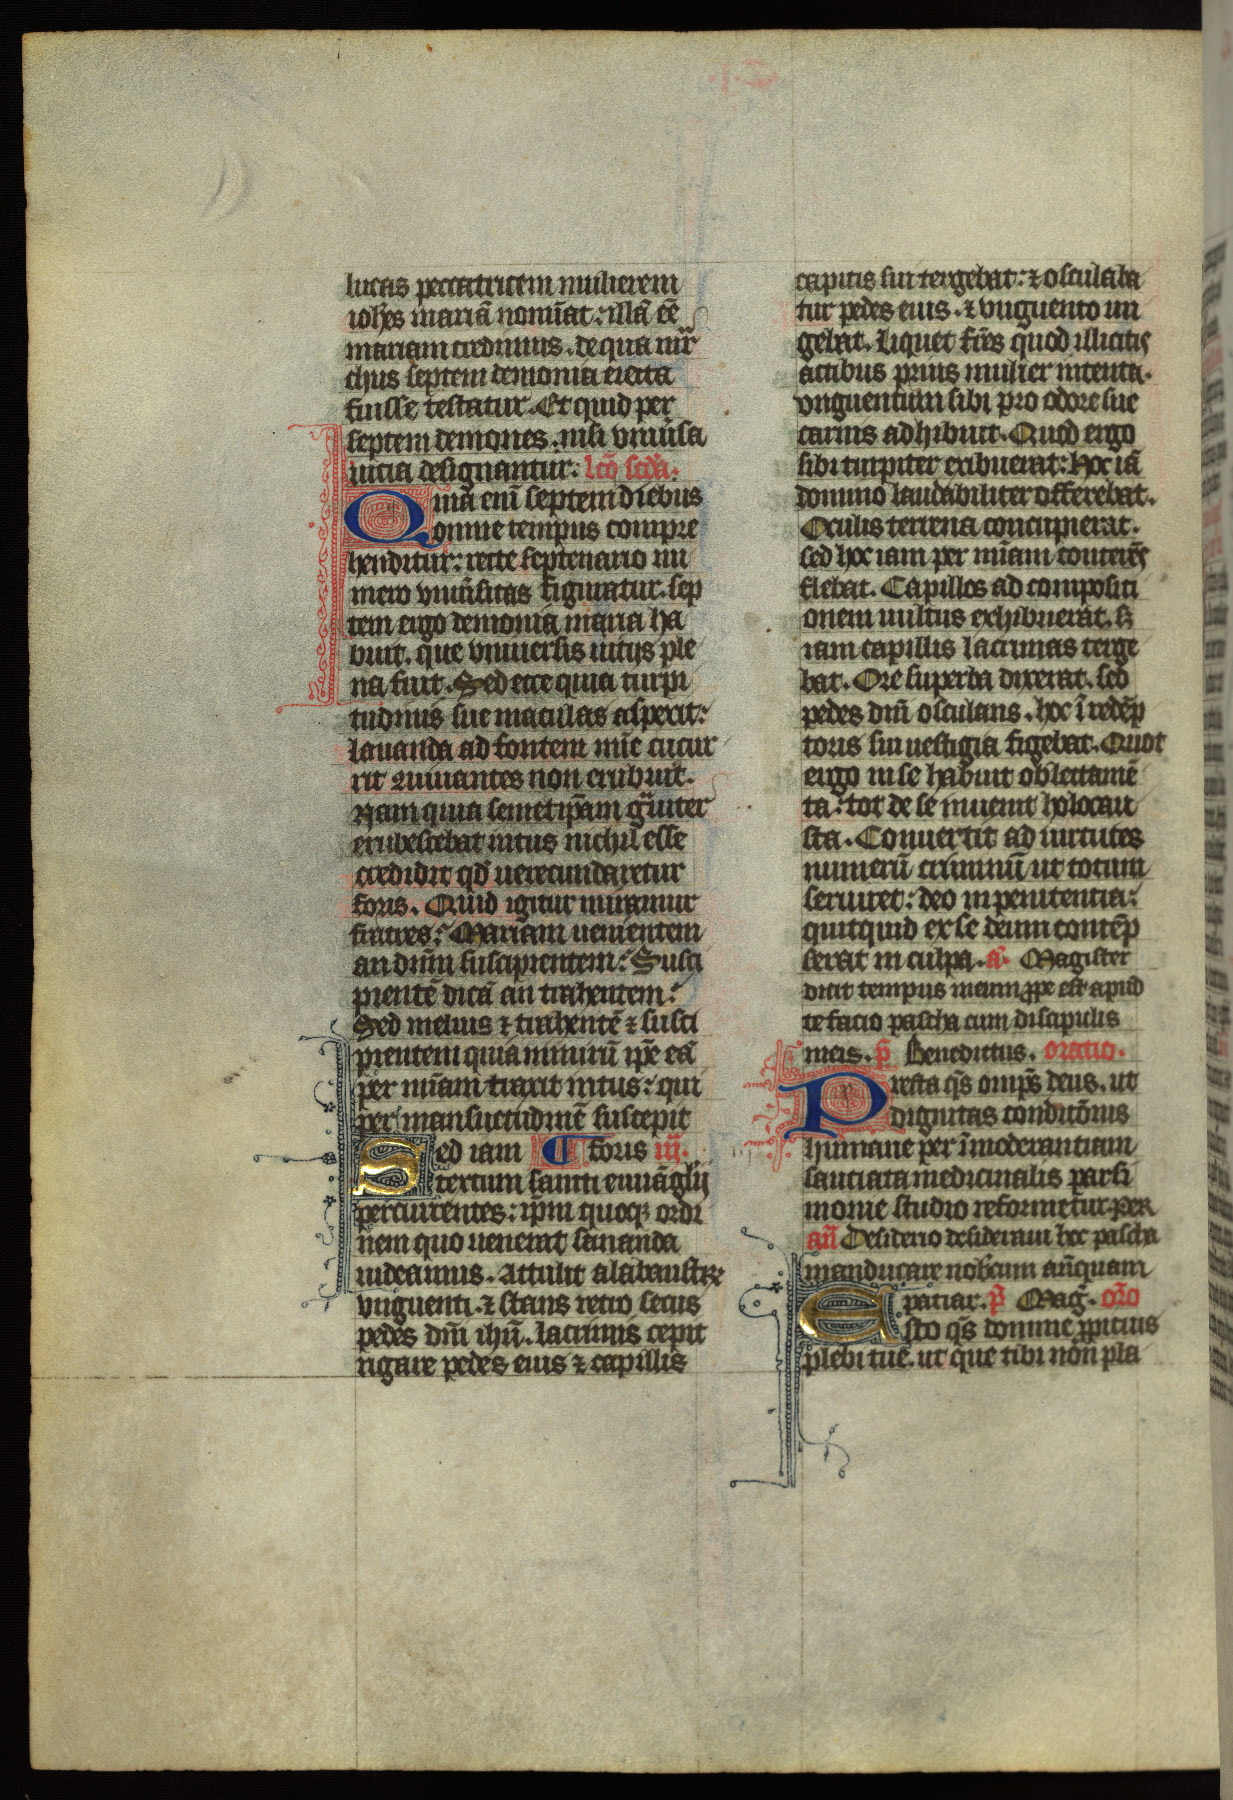 lucas peccatricem mulierem
ioh̄es mariā nomīat: illā eē
mariam credimus. de qua mr̄
chus septem demonia eiecta
fuisse testatur. Et quid per
septem demones. nisi vniūsa
uicia designantur: lc̄o scd̄a.
Qmā enī septem diebus
omne tempus compre
henditur: recte septenario nu
mero vniūsitas figuratur. sep
tem ergo demonia maria ha
buit. que vniuersis uitijs ple
na fuit. Sed ecce quia turpi
tudinis sue maculas aspexit:
lauanda ad fontem mīe cucur
rit 2uiuantes non erubuit.
Nam quia semetip̄am gͣuiter
erubescebat intus nichil esse
credidit qd̄ uerecundaretur
foris. Quid igitur miramur
fratres: Mariam uenientem
an dn̄m suscipientem: Susci
pientē dicā an trahentem:
Sed melius ⁊ trahentē ⁊ susci
pientem quia nimirū ip̄e eā
per mīam traxit intus: qui
per mansuetudinē suscepit
Sed iam ¶ foris iij̄.
textum sancti euuāglij
percurrentes: ip̄m quoqꝫ ordi
nem quo uenerat sananda
uideamus. Attulit alabaustrꝝ
vnguenti. ⁊ stans retro secus
pedes dn̄i ihū. lacrimis cepit
rigare pedes eius ⁊ capillis
capitis sui tergebat: ⁊ osculaba
tur pedes eius. ⁊ vnguento un
gebat. Liquet fr̄es quod illicitis
actibus prius mulier intenta.
vnguentum sibi pro odore sue
carnis adhibuit. Quod ergo
sibi turpiter exibuerat: hoc iā
domino laudabiliter offerebat.
Oculis terrena concupierat.
sed hos iam per mīam conterēs
flebat. Capillos ad compositi
onem uultus exhibuerat. sꝫ
iam capillis lacrimas terge
bat. Ore superba dixerat. sed
pedes dn̄i osculans. hoc ī redēp
toris sui uestigia figebat. Quot
ergo in se habuit oblectamē
ta: tot de se inuenit holocau
sta. Conuertit ad uirtutes
numerū criminū ut totum
seruiret: deo in penitentia:
quitquid ex se deum contēp
serat in culpa. a᷑. Magister
dicit tempus meum ꝓpe est apud
te facio pascha cum discipulis
meis. p̄ Benedictus. oratio.
Presta qs̄ omp̄s deus. ut
dignitas conditōnis
humane per īmoderantiam
sauciata medicinalis parsi
monie studio reformetur. Per
an̄ Desiderio desideraui hoc pascha
manducare nobiscum an̄quam
patiar. p̄ Mag̅. or̄o
Esto qs̄ domine ꝓpitius
plebi tue. ut que tibi non pla